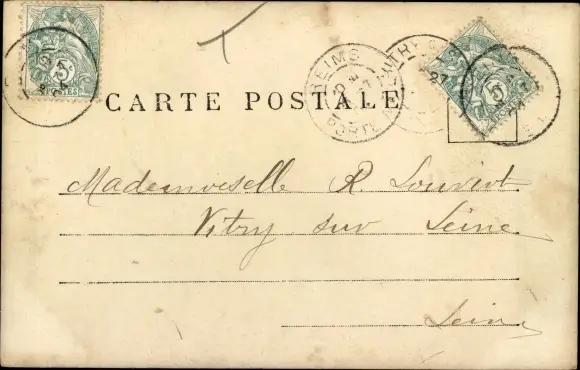 5
5
REIMS
CARTE POSTALE
Mademoiselle R. Louviot
Vitry sur Seine
Seine